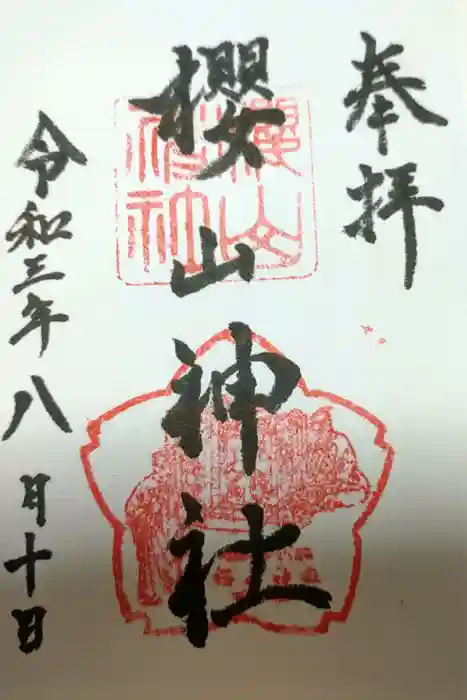 奉拝
櫻山神社
令和三年八月十日
櫻山神社